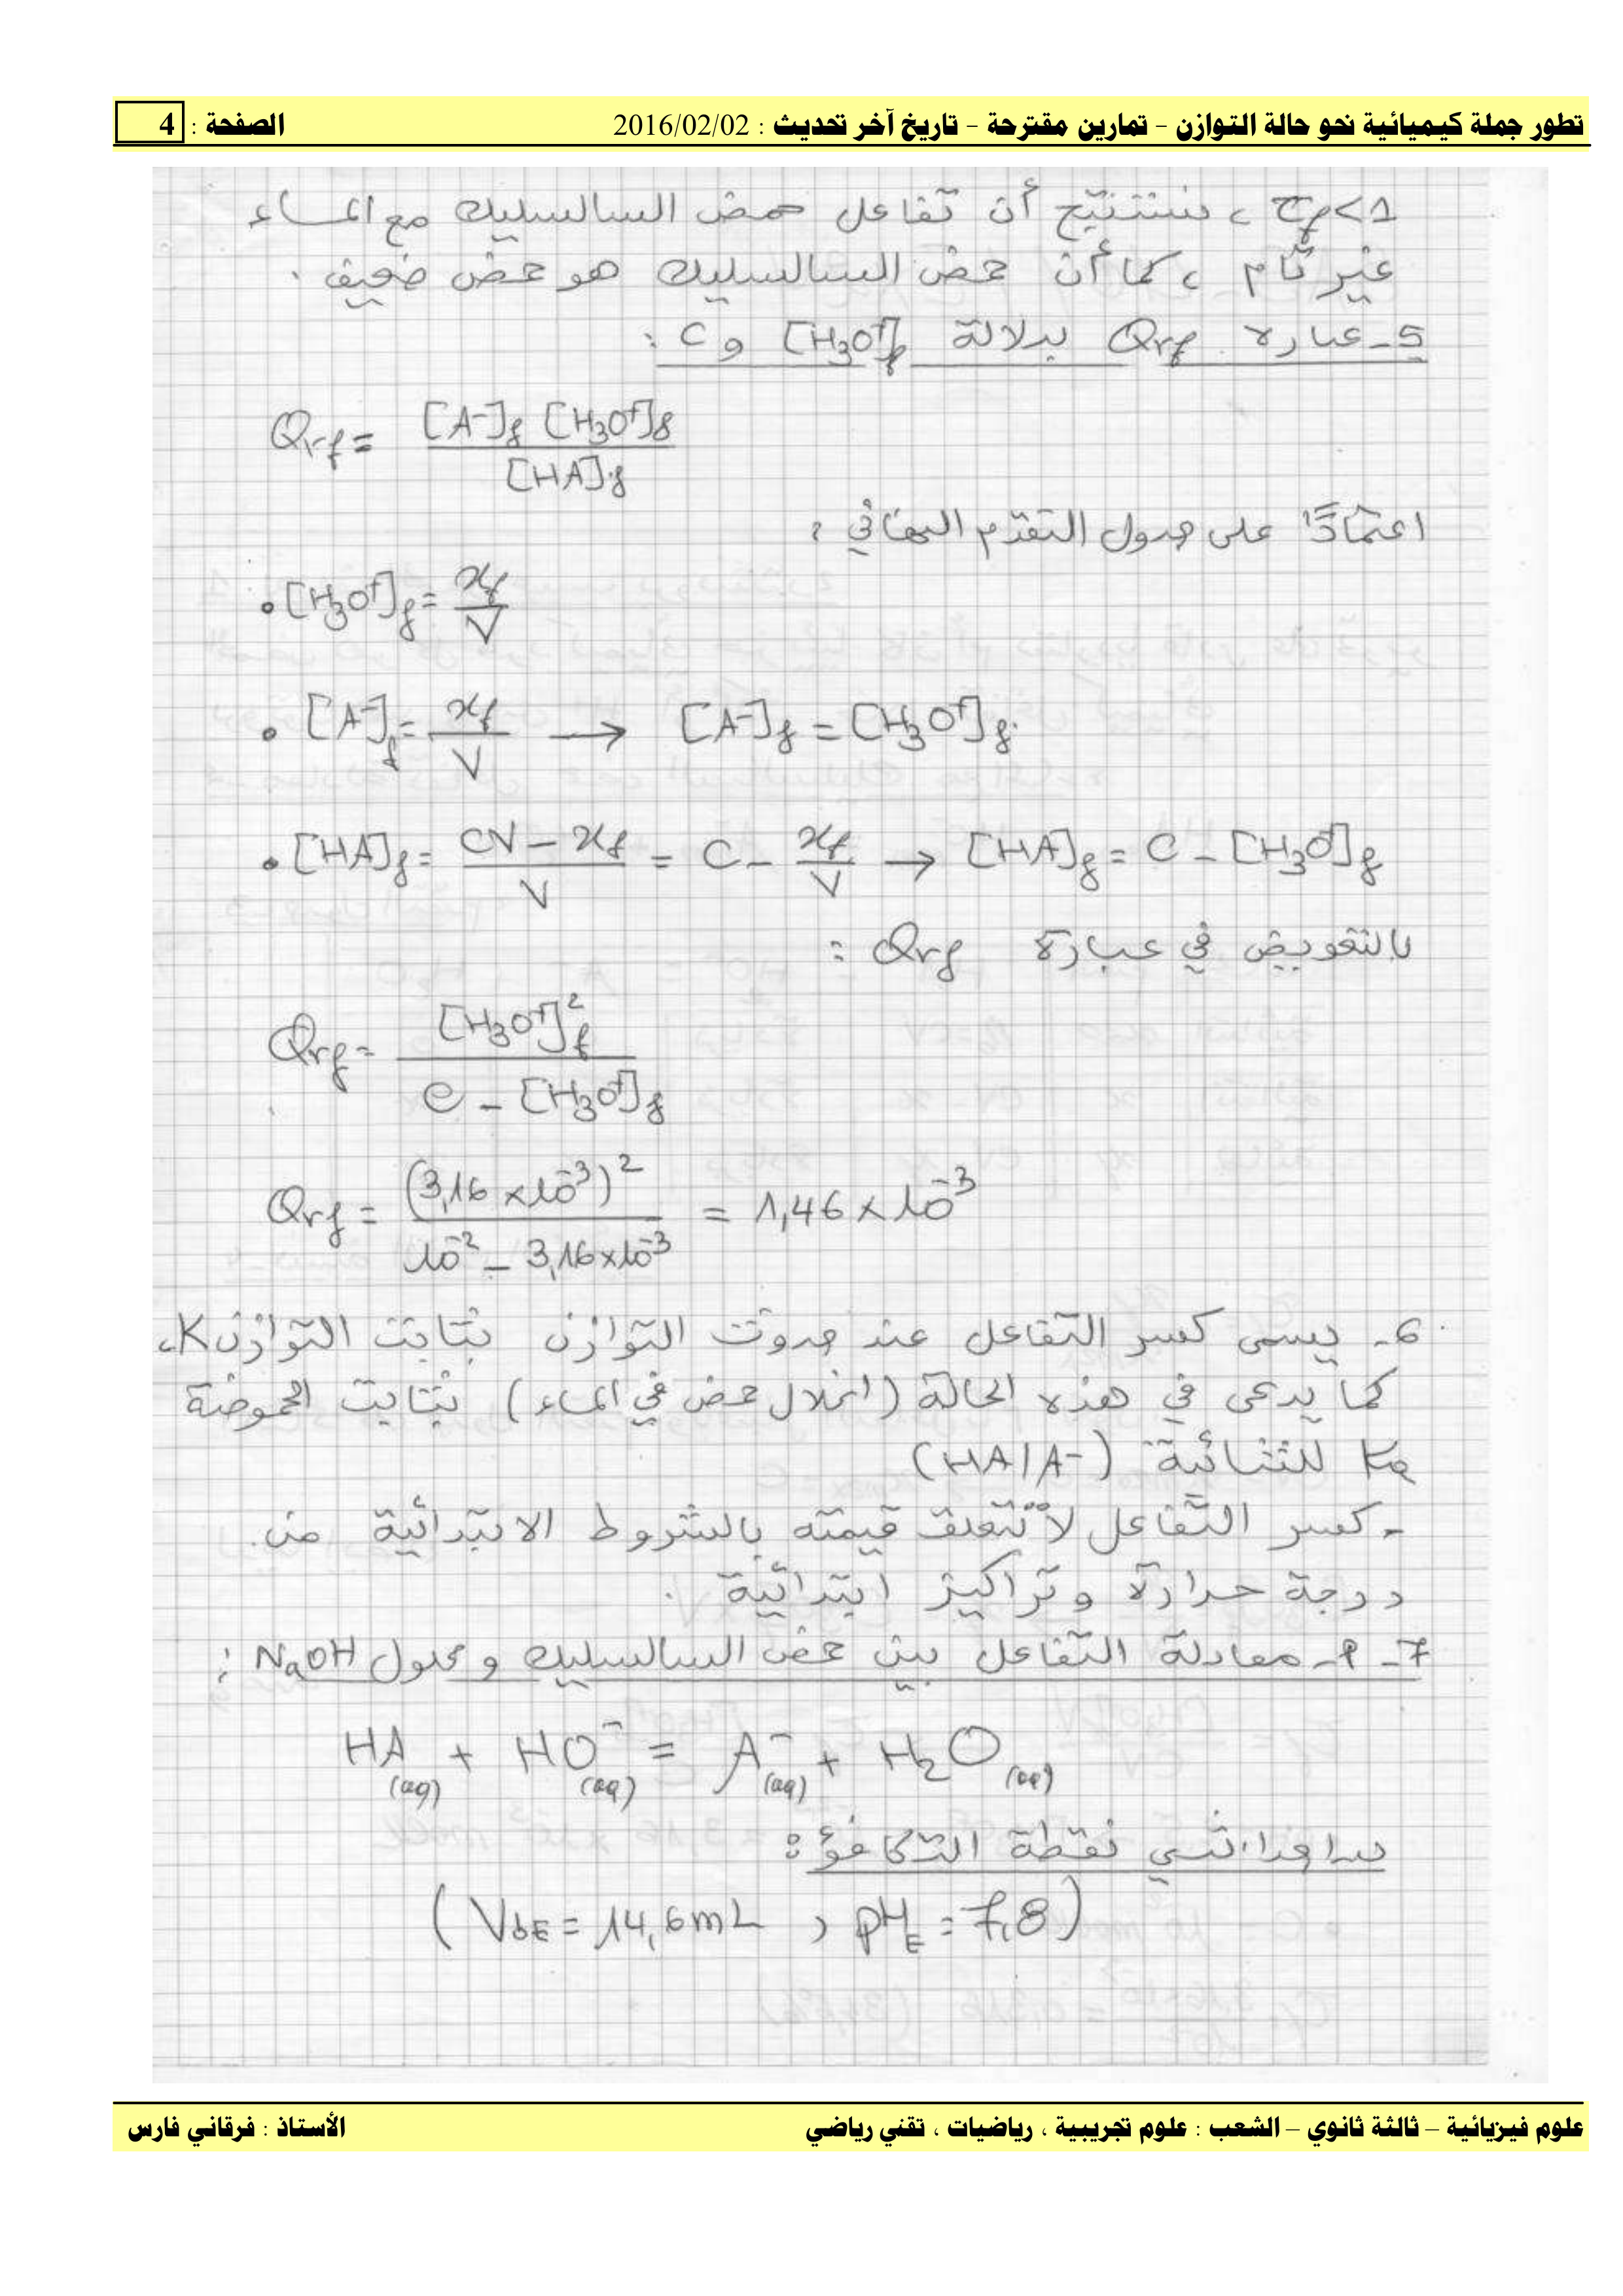 تطور جملة كيميائية نحو حالة التوازن - تمارين مقترحة - تاريخ آخر تحديث : 2016/02/02 الصفحة : 4
τf<1 ، نستنتج أن تفاعل حمض السالسليك مع الماء
غير تام ، كما أن حمض السالسليك هو حمض ضعيف .
5- عبارة Qrf بدلالة [H3O+]f و C :
Qrf = [A-]f [H3O+]f / [HA]f
اعتمادًا على جدول التقدم النهائي :
• [H3O+]f = xf / V
• [A-]f = xf / V → [A-]f = [H3O+]f
• [HA]f = CV - xf / V = C - xf / V → [HA]f = C - [H3O+]f
بالتعويض في عبارة Qrf :
Qrf = [H3O+]f² / C - [H3O+]f
Qrf = (3,16 × 10⁻³)² / 10⁻² - 3,16×10⁻³ = 1,46 × 10⁻³
6- يسمى كسر التفاعل عند حدوث التوازن بثابت التوازن K ،
كما يدعى في هذه الحالة (انحلال حمض في الماء) بثابت الحموضة
Ka للثنائية (HA/A-)
- كسر التفاعل لا تتعلق قيمته بالشروط الابتدائية من
درجة حرارة وتراكيز ابتدائية .
7- أ- معادلة التفاعل بين حمض السالسليك و محلول NaOH :
HA(aq) + HO-(aq) = A-(aq) + H2O
نقطة التكافؤ :
(VbE = 14,6 mL , pHE = 7,8)
علوم فيزيائية – ثالثة ثانوي – الشعب : علوم تجريبية ، رياضيات ، تقني رياضي الأستاذ : فرقاني فارس